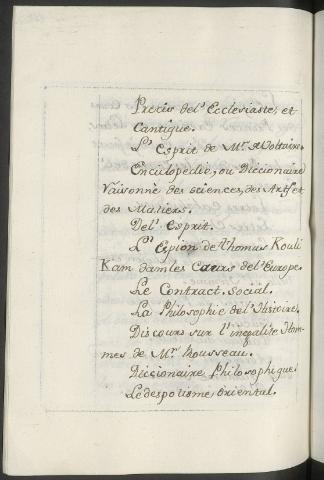 Precis del' Ecclesiaste, et
Cantique.
L' Esprit de Mr. de Voltaire.
Enciclopedie, ou Diccionaire
Raisonné des sciences, des Arts et
des Matiers.
Del' Esprit.
L' Espion de Thomas Kouli
Kam dam les Cœurs de l'Europe.
Le Contract Social.
La Philosophie del' Histoire.
Discours sur l'inegalite Hom-
mes de Mr. Rousseau.
Diccionaire Philosophique.
Le despotisme, Oriental.